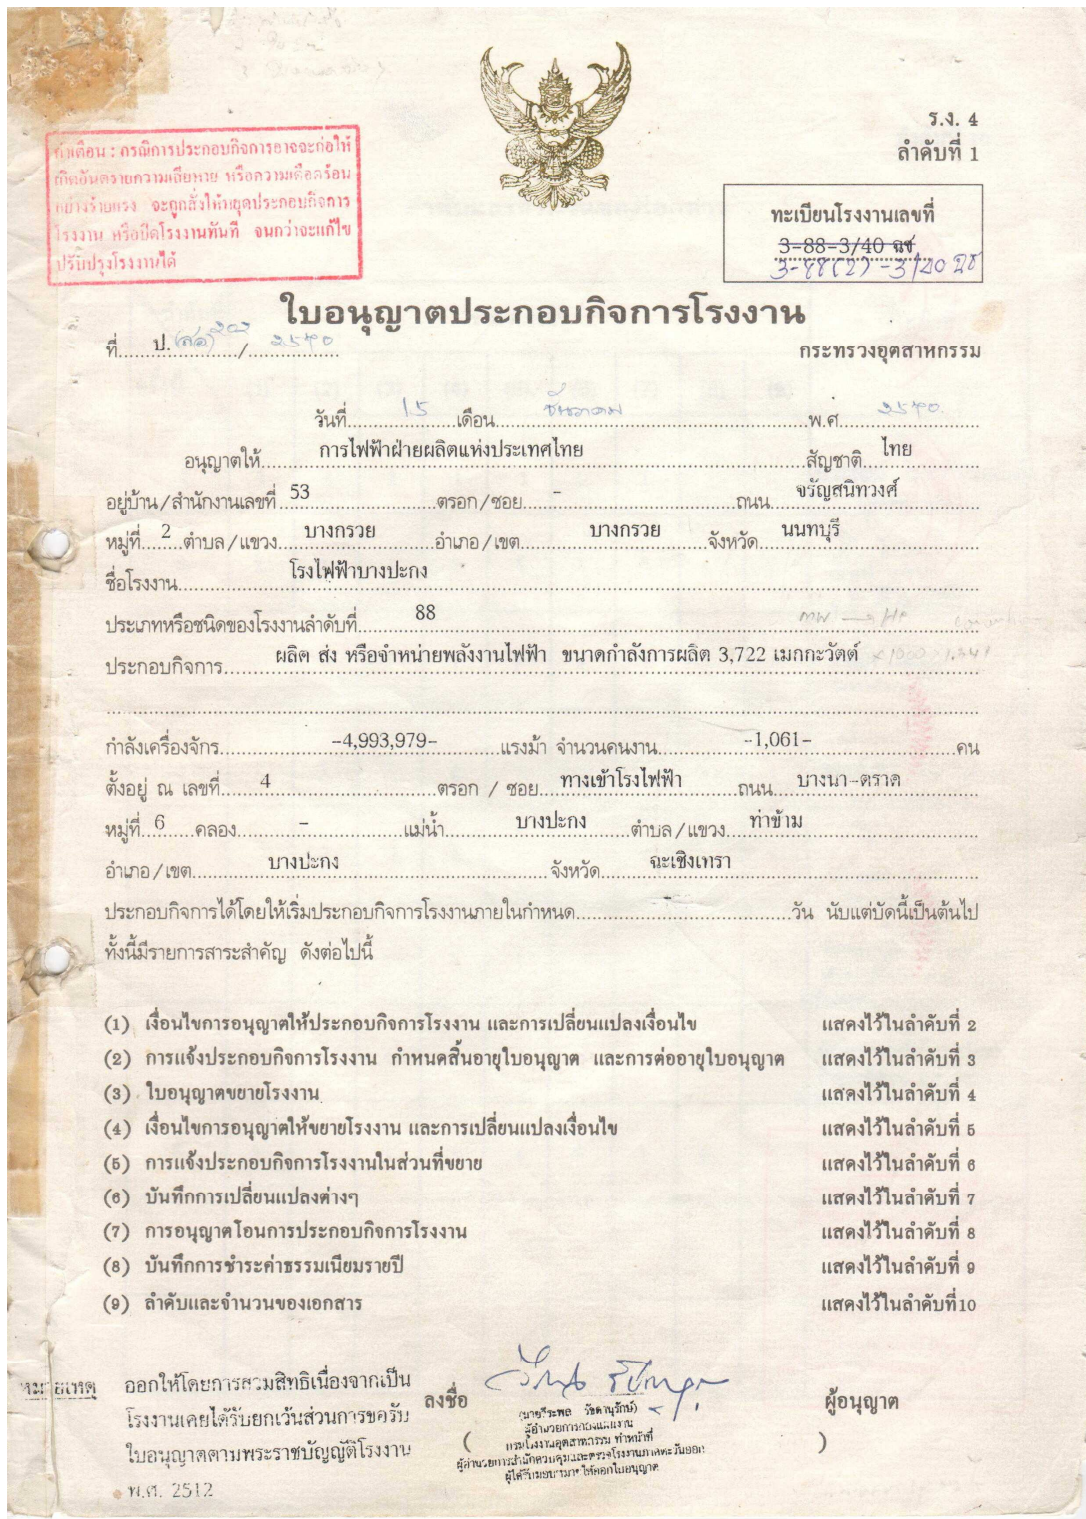 ร.ง. 4
ลำดับที่ 1
คำเตือน : กรณีการประกอบกิจการอาจจะก่อให้
เกิดอันตรายความเสียหาย หรือความเดือดร้อน
อย่างร้ายแรง จะถูกสั่งให้หยุดประกอบกิจการ
โรงงาน หรือปิดโรงงานทันที จนกว่าจะแก้ไข
ปรับปรุงโรงงานได้
ทะเบียนโรงงานเลขที่
3-88-3/40 ฉช
3-88(2)-3/40 ฉช
ใบอนุญาตประกอบกิจการโรงงาน
ที่.....ป............/..............2540
กระทรวงอุตสาหกรรม
วันที่ 15 เดือน ธันวาคม พ.ศ. 2540
อนุญาตให้ การไฟฟ้าฝ่ายผลิตแห่งประเทศไทย สัญชาติ ไทย
อยู่บ้าน/สำนักงานเลขที่ 53 ตรอก/ซอย - ถนน จรัญสนิทวงศ์
หมู่ที่ 2 ตำบล/แขวง บางกรวย อำเภอ/เขต บางกรวย จังหวัด นนทบุรี
ชื่อโรงงาน โรงไฟฟ้าบางปะกง
ประเภทหรือชนิดของโรงงานลำดับที่ 88
ประกอบกิจการ ผลิต ส่ง หรือจำหน่ายพลังงานไฟฟ้า ขนาดกำลังการผลิต 3,722 เมกกะวัตต์
กำลังเครื่องจักร -4,993,979- แรงม้า จำนวนคนงาน -1,061- คน
ตั้งอยู่ ณ เลขที่ 4 ตรอก / ซอย ทางเข้าโรงไฟฟ้า ถนน บางนา-ตราด
หมู่ที่ 6 คลอง - แม่น้ำ บางปะกง ตำบล/แขวง ท่าข้าม
อำเภอ/เขต บางปะกง จังหวัด ฉะเชิงเทรา
ประกอบกิจการได้โดยให้เริ่มประกอบกิจการโรงงานภายในกำหนด - วัน นับแต่บัดนี้เป็นต้นไป
ทั้งนี้มีรายการสาระสำคัญ ดังต่อไปนี้
(1) เงื่อนไขการอนุญาตให้ประกอบกิจการโรงงาน และการเปลี่ยนแปลงเงื่อนไข แสดงไว้ในลำดับที่ 2
(2) การแจ้งประกอบกิจการโรงงาน กำหนดสิ้นอายุใบอนุญาต และการต่ออายุใบอนุญาต แสดงไว้ในลำดับที่ 3
(3) ใบอนุญาตขยายโรงงาน แสดงไว้ในลำดับที่ 4
(4) เงื่อนไขการอนุญาตให้ขยายโรงงาน และการเปลี่ยนแปลงเงื่อนไข แสดงไว้ในลำดับที่ 5
(5) การแจ้งประกอบกิจการโรงงานในส่วนที่ขยาย แสดงไว้ในลำดับที่ 6
(6) บันทึกการเปลี่ยนแปลงต่างๆ แสดงไว้ในลำดับที่ 7
(7) การอนุญาตโอนการประกอบกิจการโรงงาน แสดงไว้ในลำดับที่ 8
(8) บันทึกการชำระค่าธรรมเนียมรายปี แสดงไว้ในลำดับที่ 9
(9) ลำดับและจำนวนของเอกสาร แสดงไว้ในลำดับที่10
หมายเหตุ ออกให้โดยการสวมสิทธิเนื่องจากเป็น
โรงงานเคยได้รับยกเว้นส่วนการขอรับ
ใบอนุญาตตามพระราชบัญญัติโรงงาน
พ.ศ. 2512
ลงชื่อ ผู้อนุญาต
(นายวีระพล วัชดานุรักษ์)
ผู้อำนวยการกองแผนงาน
กรมโรงงานอุตสาหกรรม ทำหน้าที่
ผู้อำนวยการสำนักควบคุมและตรวจโรงงานภาคตะวันออก
ผู้ได้รับมอบหมายให้ออกใบอนุญาต